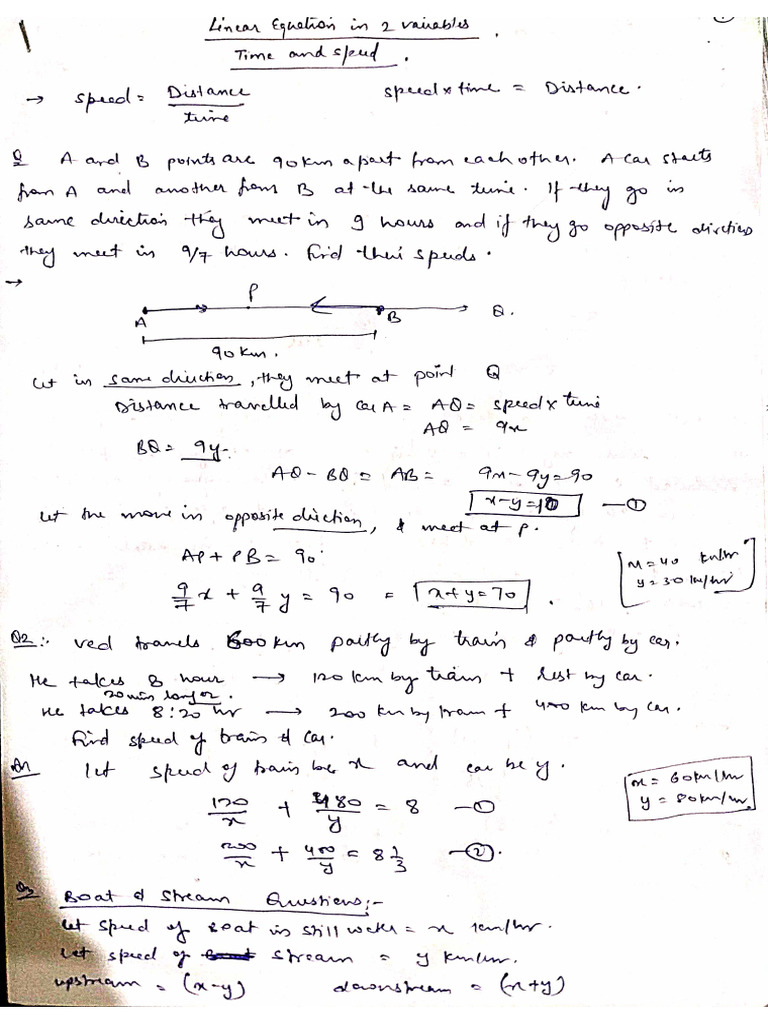 Linear Equation in 2 variables.
Time and speed.
→ speed = Distance / time    speed x time = Distance.
Q A and B points are 90km apart from each other. A car starts
from A and another from B at the same time. If they go in
same direction they meet in 9 hours and if they go opposite direction
they meet in 9/7 hours. Find their speeds.
→
P
A B Q.
90km.
Let in same direction, they meet at point Q
Distance travelled by car A = AQ = speed x time
AQ = 9x
BQ = 9y.
AQ - BQ = AB = 9x - 9y = 90
x - y = 10 — ①
Let the move in opposite direction, & meet at P.
AP + PB = 90
9/7 x + 9/7 y = 90 = x + y = 70.
x = 40 km/hr
y = 30 km/hr
Q2:- Ved travels 600km partly by train & partly by car.
He takes 8 hour → 120 km by train + rest by car.
20 min longer.
He takes 8:20 hr → 200 km by train + 400 km by car.
Find speed of train & car.
let speed of train be x and car be y.
120/x + 480/y = 8 — ①
200/x + 400/y = 8 1/3 — ②.
x = 60km/hr
y = 80km/hr.
Q3 Boat & Stream Questions:-
Let speed of Boat in still water = x km/hr.
Let speed of stream = y km/hr.
upstream = (x-y)    downstream = (x+y)